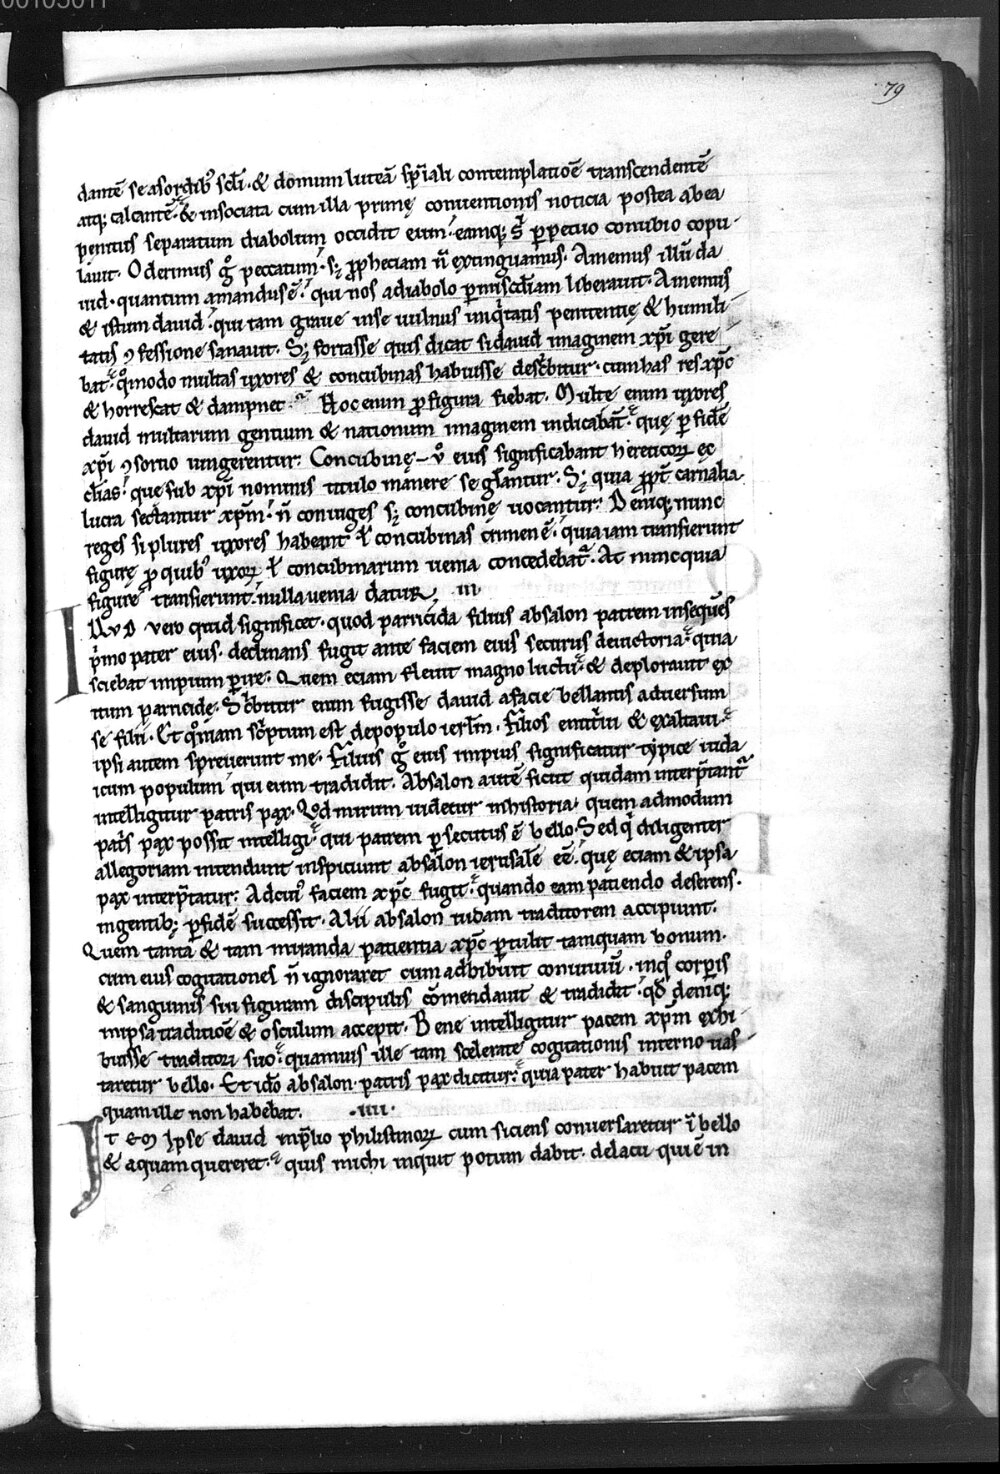 79
dantē se a sordib; scłi · & domum luteā sp̄iali contemplatiōe transcendentē
atq; calcantē · & insociata cum illa primę conuentionis noticia postea ab ea
penitus separatum diabolum occidit eum · eamq; s̄ perpetuo conubio copu-
lauit · Oderimus g̊ peccatum · sꝫ ꝓpheciam n̄ extinguamus · Amemus illū da
uid · quantum amandus ē · qui nos a diabolo ꝑ miscd̄iam liberauit · Amemus
& istum dauid · qui tam graue in se uulnus iniq̇tatis penitentię & humili-
tatis ꝯfessione sanauit · Sꝫ fortasse quis dicat si dauid imaginem xp̄i gere-
bat · q̊modo multas uxores & concubinas habuisse desc̄bitur · cum has res xp̄c
& horrescat & dampnet · Hoc enim ꝓ figura fiebat · Multę enim uxores
dauid multarum gentium & nationum imaginem indicabāt · quę ꝑ fidē
xp̄i ꝯsortio iungerentur · Concubinę ů eius significabant hereticoꝝ ęc
clias · que sub xp̄i nominis titulo manere se głantur · Sꝫ quia ꝓpt̄ carnalia
lucra sectantur xp̄m · n̄ coniuges sꝫ concubinę uocantur · Deniq; nunc
reges si plures uxores habeant ł concubinas crimen ē · quia iam transierunt
figurę ꝓ quib; uxoꝝ ł concubinarum uenia concedebat᷑ · At nunc quia
figure transierunt nulla uenia datur · III
ILLVD vero quid significet · quod parricida filius absalon patrem inseques
ṗmo pater eius · declinans fugit ante faciem eius securus de uictoria · quia
sciebat impium ꝑire · Quem eciam fleuit magno luctu · & deplorauit ex
itum parricidę · Sc̄bitur enim fugisse dauid a facie bellantis aduersum
se filii · Et qm̄iam sc̄ptum est de populo ierłm · Filios enutriui & exaltaui ·
ipsi autem spreuerunt me · Filius g̊ eius impius significatur typice iuda
icum populum qui eum tradidit · Absalon autē sicut quidam interp̄tant᷑
intelligitur patris pax · Qd mirum uidetur in historia · quem admodum
pat̄s pax possit intelligi · qui patrem ꝑsecutus ē bello · Sed q̇ diligenter
allegoriam intendunt inspiciunt absalon ierusalē eē · quę eciam & ipsa
pax interp̄tatur · A cui; faciem xp̄c fugit · quando eam patiendo deserens ·
in gentib; ꝑ fidē successit · Alii absalon iudam traditorem accipiunt ·
Quem tantā & tam miranda patientia xp̄c ꝑtulit tamquam bonum ·
cum eius cogitationes n̄ ignoraret cum adhibuit conuiuiū · inq̊ corp̄is
& sanguinis sui figuram discipulis cōmendauit & tradidit · qd̄ deniq;
in ipsa traditiōe & osculum accepit · Bene intelligitur pacem xp̄m exhi-
buisse traditori suo · quamuis ille tam scelerate cogitationis interno uas-
taretur bello · Et ido absalon · patris pax dicitur · quia pater habuit pacem
quam ille non habebat · IIII ·
ITEM Ipse dauid in p̄lio philistinoꝝ cum siciens conuersaretur ī bello
& aquam quereret · quis michi inquit potum dabit · de lacu qui ē in